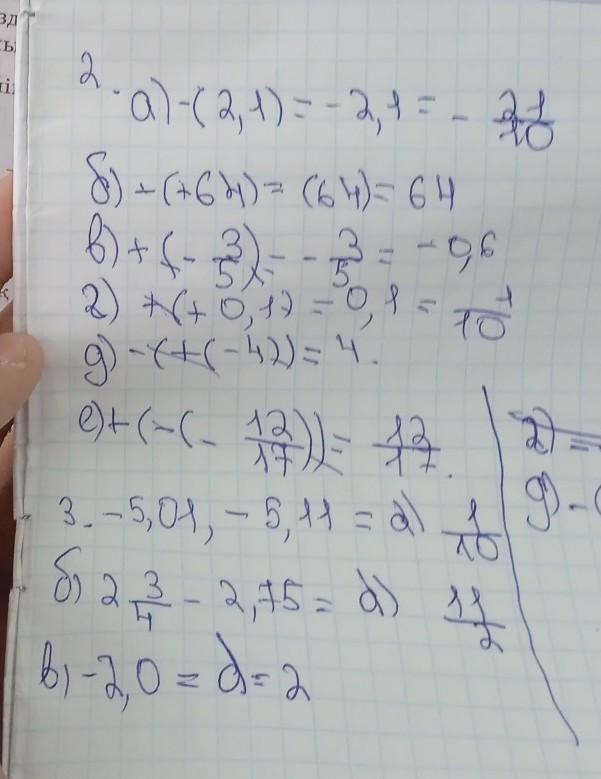 2. а) -(2,1) = -2,1 = - 21/10
б) +(+64) = (64) = 64
в) +(- 3/5) = - 3/5 = -0,6
г) +(+ 0,1) = 0,1 = 1/10
д) -(+(-4)) = 4.
е) +(-(- 12/17)) = 12/17.
3. -5,01, -5,11 = d) 1/10
б) 2 3/4 - 2,75 = d) 11/2
в) -2,0 = d = 2
г) =
д) - (